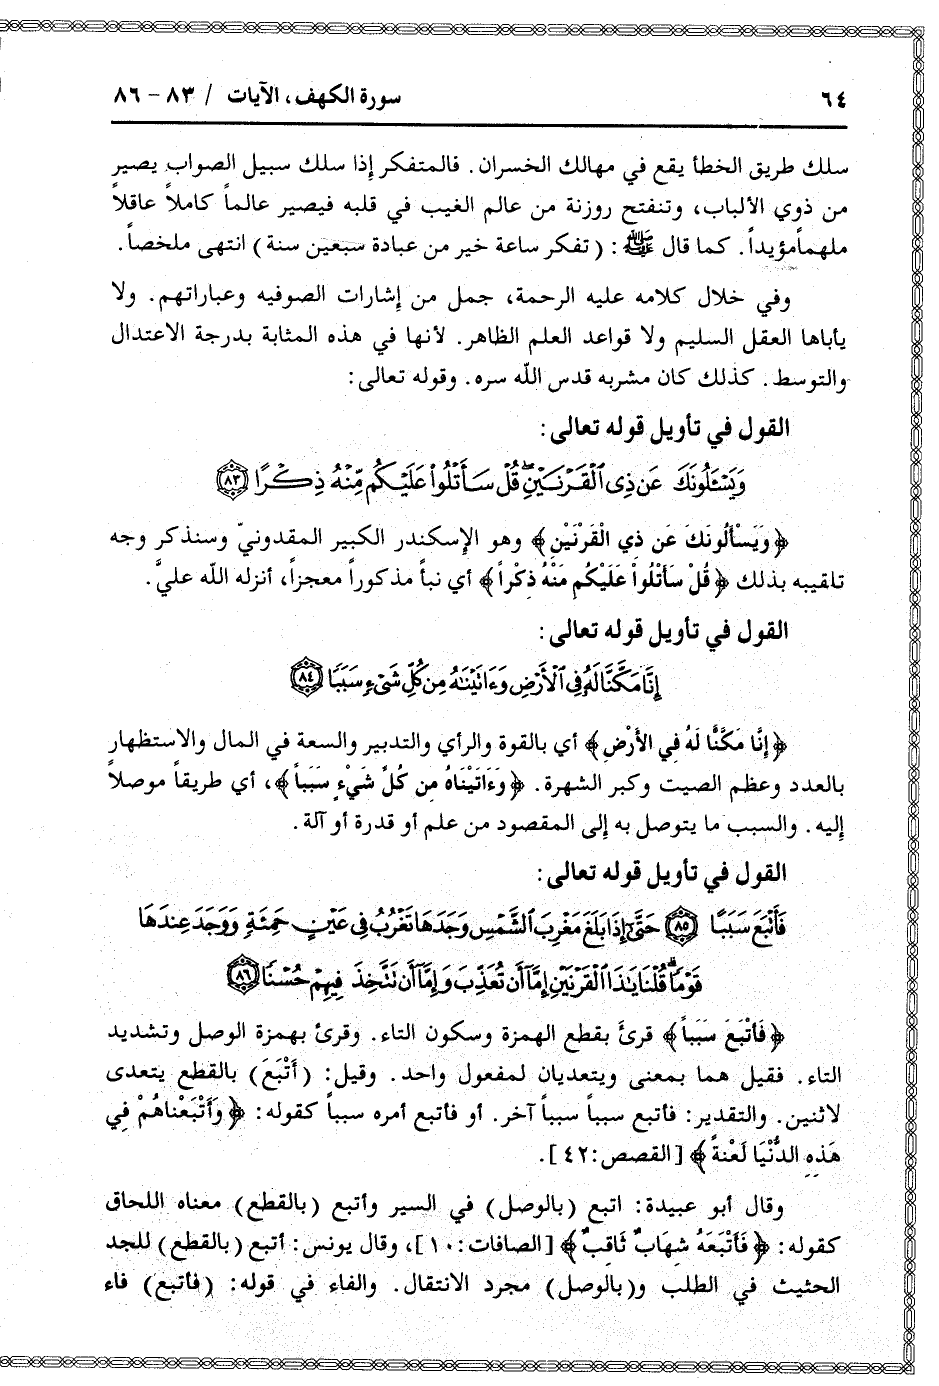 ٦٤
سورة الكهف، الآيات / ٨٣ – ٨٦
سلك طريق الخطأ يقع في مهالك الخسران. فالمتفكر إذا سلك سبيل الصواب يصير
من ذوي الألباب، وتنفتح روزنة من عالم الغيب في قلبه فيصير عالماً كاملاً عاقلاً
ملهماًمؤيداً. كما قال ﷺ: (تفكر ساعة خير من عبادة سبعين سنة) انتهى ملخصاً.
وفي خلال كلامه عليه الرحمة، جمل من إشارات الصوفيه وعباراتهم. ولا
يأباها العقل السليم ولا قواعد العلم الظاهر. لأنها في هذه المثابة بدرجة الاعتدال
والتوسط. كذلك كان مشربه قدس الله سره. وقوله تعالى:
القول في تأويل قوله تعالى:
وَيَسْـَٔلُونَكَ عَن ذِى ٱلْقَرْنَيْنِ ۖ قُلْ سَأَتْلُوا۟ عَلَيْكُم مِّنْهُ ذِكْرًا ٨٣
﴿وَيَسْألُونَكَ عَن ذي الْقَرْنَيْنِ﴾ وهو الإسكندر الكبير المقدونيّ وسنذكر وجه
تلقيبه بذلك ﴿قُلْ سَأَتْلُواْ عَلَيْكُمِ مَنْهُ ذِكْراً﴾ أي نبأ مذكوراً معجزاً، أنزله الله عليَّ.
القول في تأويل قوله تعالى:
إِنَّا مَكَّنَّا لَهُۥ فِى ٱلْأَرْضِ وَءَاتَيْنَٰهُ مِن كُلِّ شَىْءٍ سَبَبًا ٨٤
﴿إِنَّا مَكَّنَّا لَهُ فِي الأَرْضِ﴾ أي بالقوة والرأي والتدبير والسعة في المال والاستظهار
بالعدد وعظم الصيت وكبر الشهرة. ﴿وَءَاتَيْنَاهُ مِن كُلِّ شَيْءٍ سَبَباً﴾، أي طريقاً موصلاً
إليه. والسبب ما يتوصل به إلى المقصود من علم أو قدرة أو آلة.
القول في تأويل قوله تعالى:
فَأَتْبَعَ سَبَبًا ٨٥ حَتَّىٰٓ إِذَا بَلَغَ مَغْرِبَ ٱلشَّمْسِ وَجَدَهَا تَغْرُبُ فِى عَيْنٍ حَمِئَةٍ وَوَجَدَ عِندَهَا
قَوْمًا ۗ قُلْنَا يَٰذَا ٱلْقَرْنَيْنِ إِمَّآ أَن تُعَذِّبَ وَإِمَّآ أَن تَتَّخِذَ فِيهِمْ حُسْنًا ٨٦
﴿فَأَتْبَعَ سَبَباً﴾ قرئَ بقطع الهمزة وسكون التاء. وقرئ بهمزة الوصل وتشديد
التاء. فقيل هما بمعنى ويتعديان لمفعول واحد. وقيل: (أَتْبَعَ) بالقطع يتعدى
لاثنين. والتقدير: فأتبع سبباً سبباً آخر. أو فأتبع أمره سبباً كقوله: ﴿وَأَتْبَعْناهُمْ فِي
هَذِهِ الدُّنْيَا لَعْنةً﴾ [القصص:٤٢].
وقال أبو عبيدة: اتبع (بالوصل) في السير وأتبع (بالقطع) معناه اللحاق
كقوله: ﴿فَأَتْبَعَهُ شِهابٌ ثَاقِبٌ﴾ [الصافات:١٠]، وقال يونس: أتبع (بالقطع) للجد
الحثيث في الطلب و(بالوصل) مجرد الانتقال. والفاء في قوله: (فأتبع) فاء